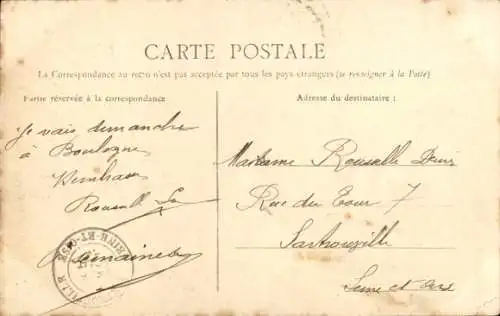 CARTE POSTALE
La Correspondance au recto n'est pas acceptée par tous les pays étrangers (se renseigner à la Poste)
Partie réservée à la correspondance
Adresse du destinataire :
Je vais dimanche
à Boulogne
Madame Rousselle
Rue du Four 7
Sartrouville
Seine et Oise
SEINE-ET-OISE